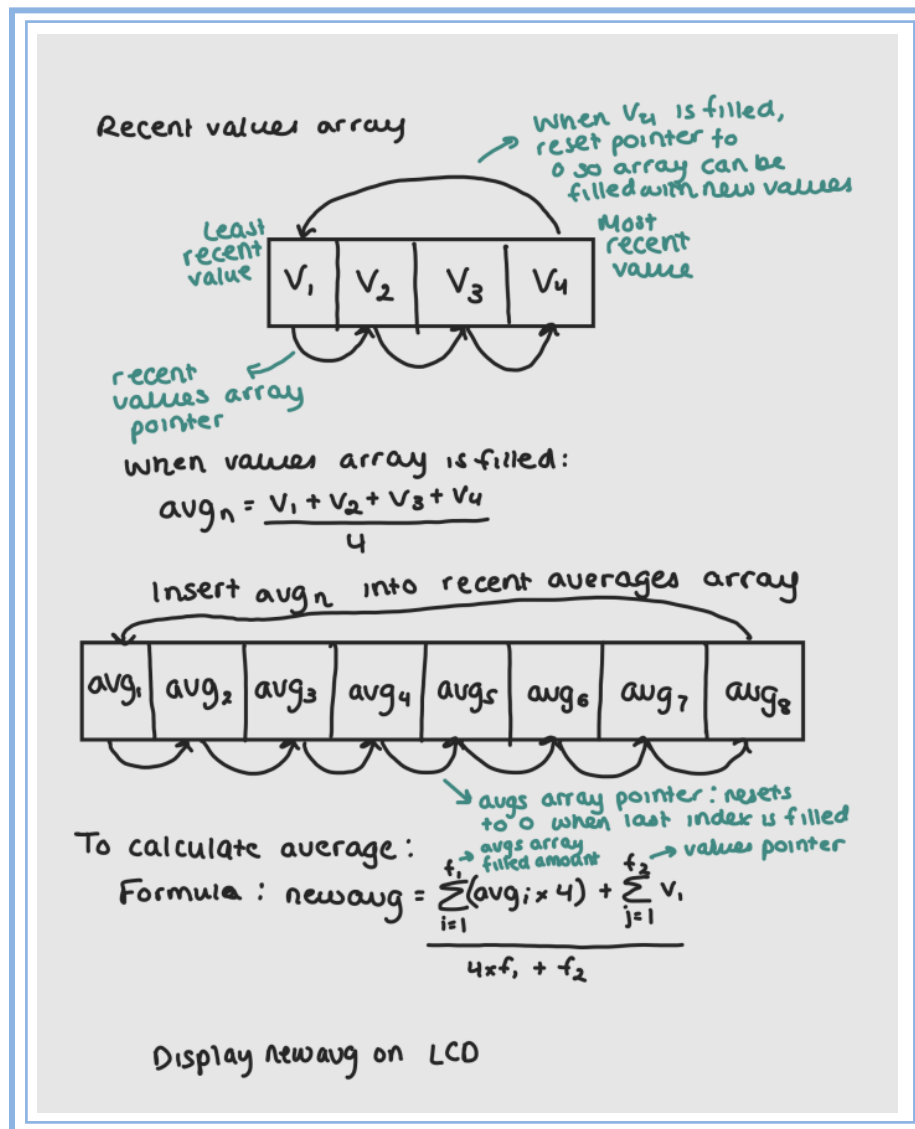 Recent values array
When V4 is filled,
reset pointer to
0 so array can be
filled with new values
Least
recent
value
Most
recent
value
V1 V2 V3 V4
recent
values array
pointer
When values array is filled:
avgn = V1 + V2 + V3 + V4
4
Insert avgn into recent averages array
avg1 avg2 avg3 avg4 avg5 avg6 avg7 avg8
avgs array pointer: resets
to 0 when last index is filled
To calculate average:
avgs array
filled amount
values pointer
Formula: newavg = f1 ∑ i=1 (avgi × 4) + f2 ∑ j=1 V1
4×f1 + f2
Display newavg on LCD